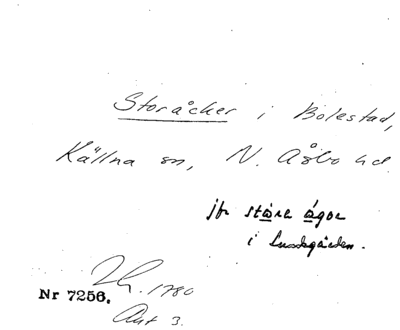 Storåcker i Bolestad,
Källna sn, N. Åsbo hd.
jfr stora ågor
i
1780
Nr 7256.
Akt 3.